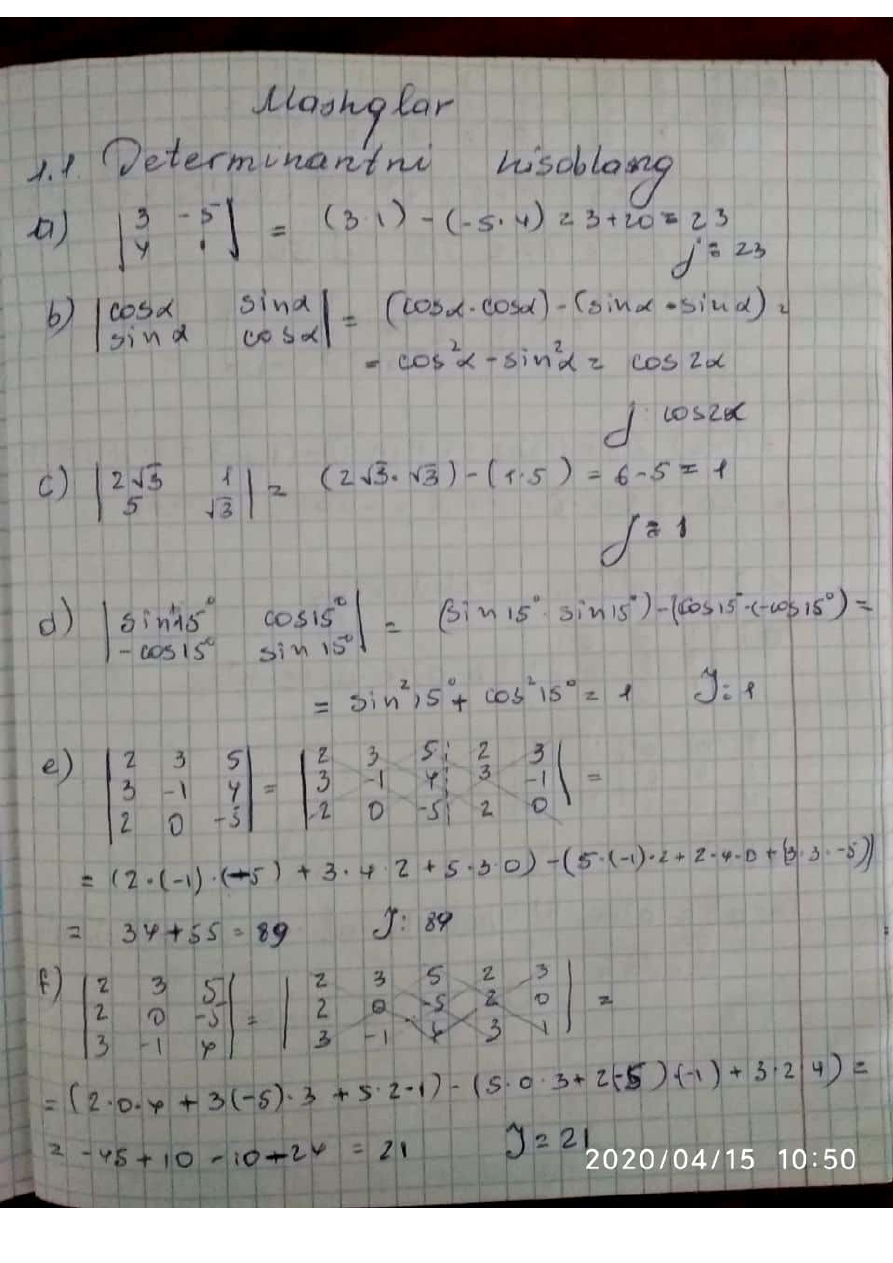 Mashqlar
1.1 Determinantni hisoblang
a) |3 -5; 4 1| = (3·1) - (-5·4) = 3+20 = 23
J = 23
b) |cosα sinα; sinα cosα| = (cosα·cosα) - (sinα·sinα) =
= cos²α - sin²α = cos2α
J cos2α
c) |2√3 1; 5 √3| = (2√3·√3) - (1·5) = 6-5 = 1
J = 1
d) |sin15° cos15°; -cos15° sin15°| = (sin15°·sin15°) - (cos15·(-cos15°) =
= sin²15° + cos²15° = 1 J: 1
e) |2 3 5; 3 -1 4; 2 0 -5| = |2 3 5 2 3; 3 -1 4 3 -1; 2 0 -5 2 0| =
= (2·(-1)·(-5) + 3·4·2 + 5·3·0) - (5·(-1)·2 + 2·4·0 + (3·3·-5))
= 34+55 = 89 J: 89
f) |2 3 5; 2 0 -5; 3 -1 4| = |2 3 5 2 3; 2 0 -5 2 0; 3 -1 4 3 1| =
= (2·0·4 + 3(-5)·3 + 5·2-1) - (5·0·3 + 2(-5)(-1) + 3·2 4) =
= -45+10 -10+24 = 21 J = 21
2020/04/15 10:50